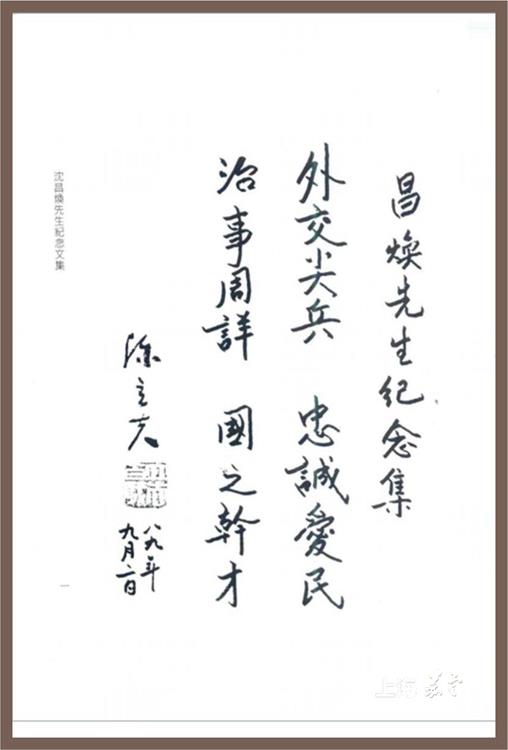 昌煥先生紀念集
外交尖兵 忠誠愛民
治事周詳 國之幹才
陳立夫
八九年
九月一日
沈昌煥先生紀念文集
一
上海